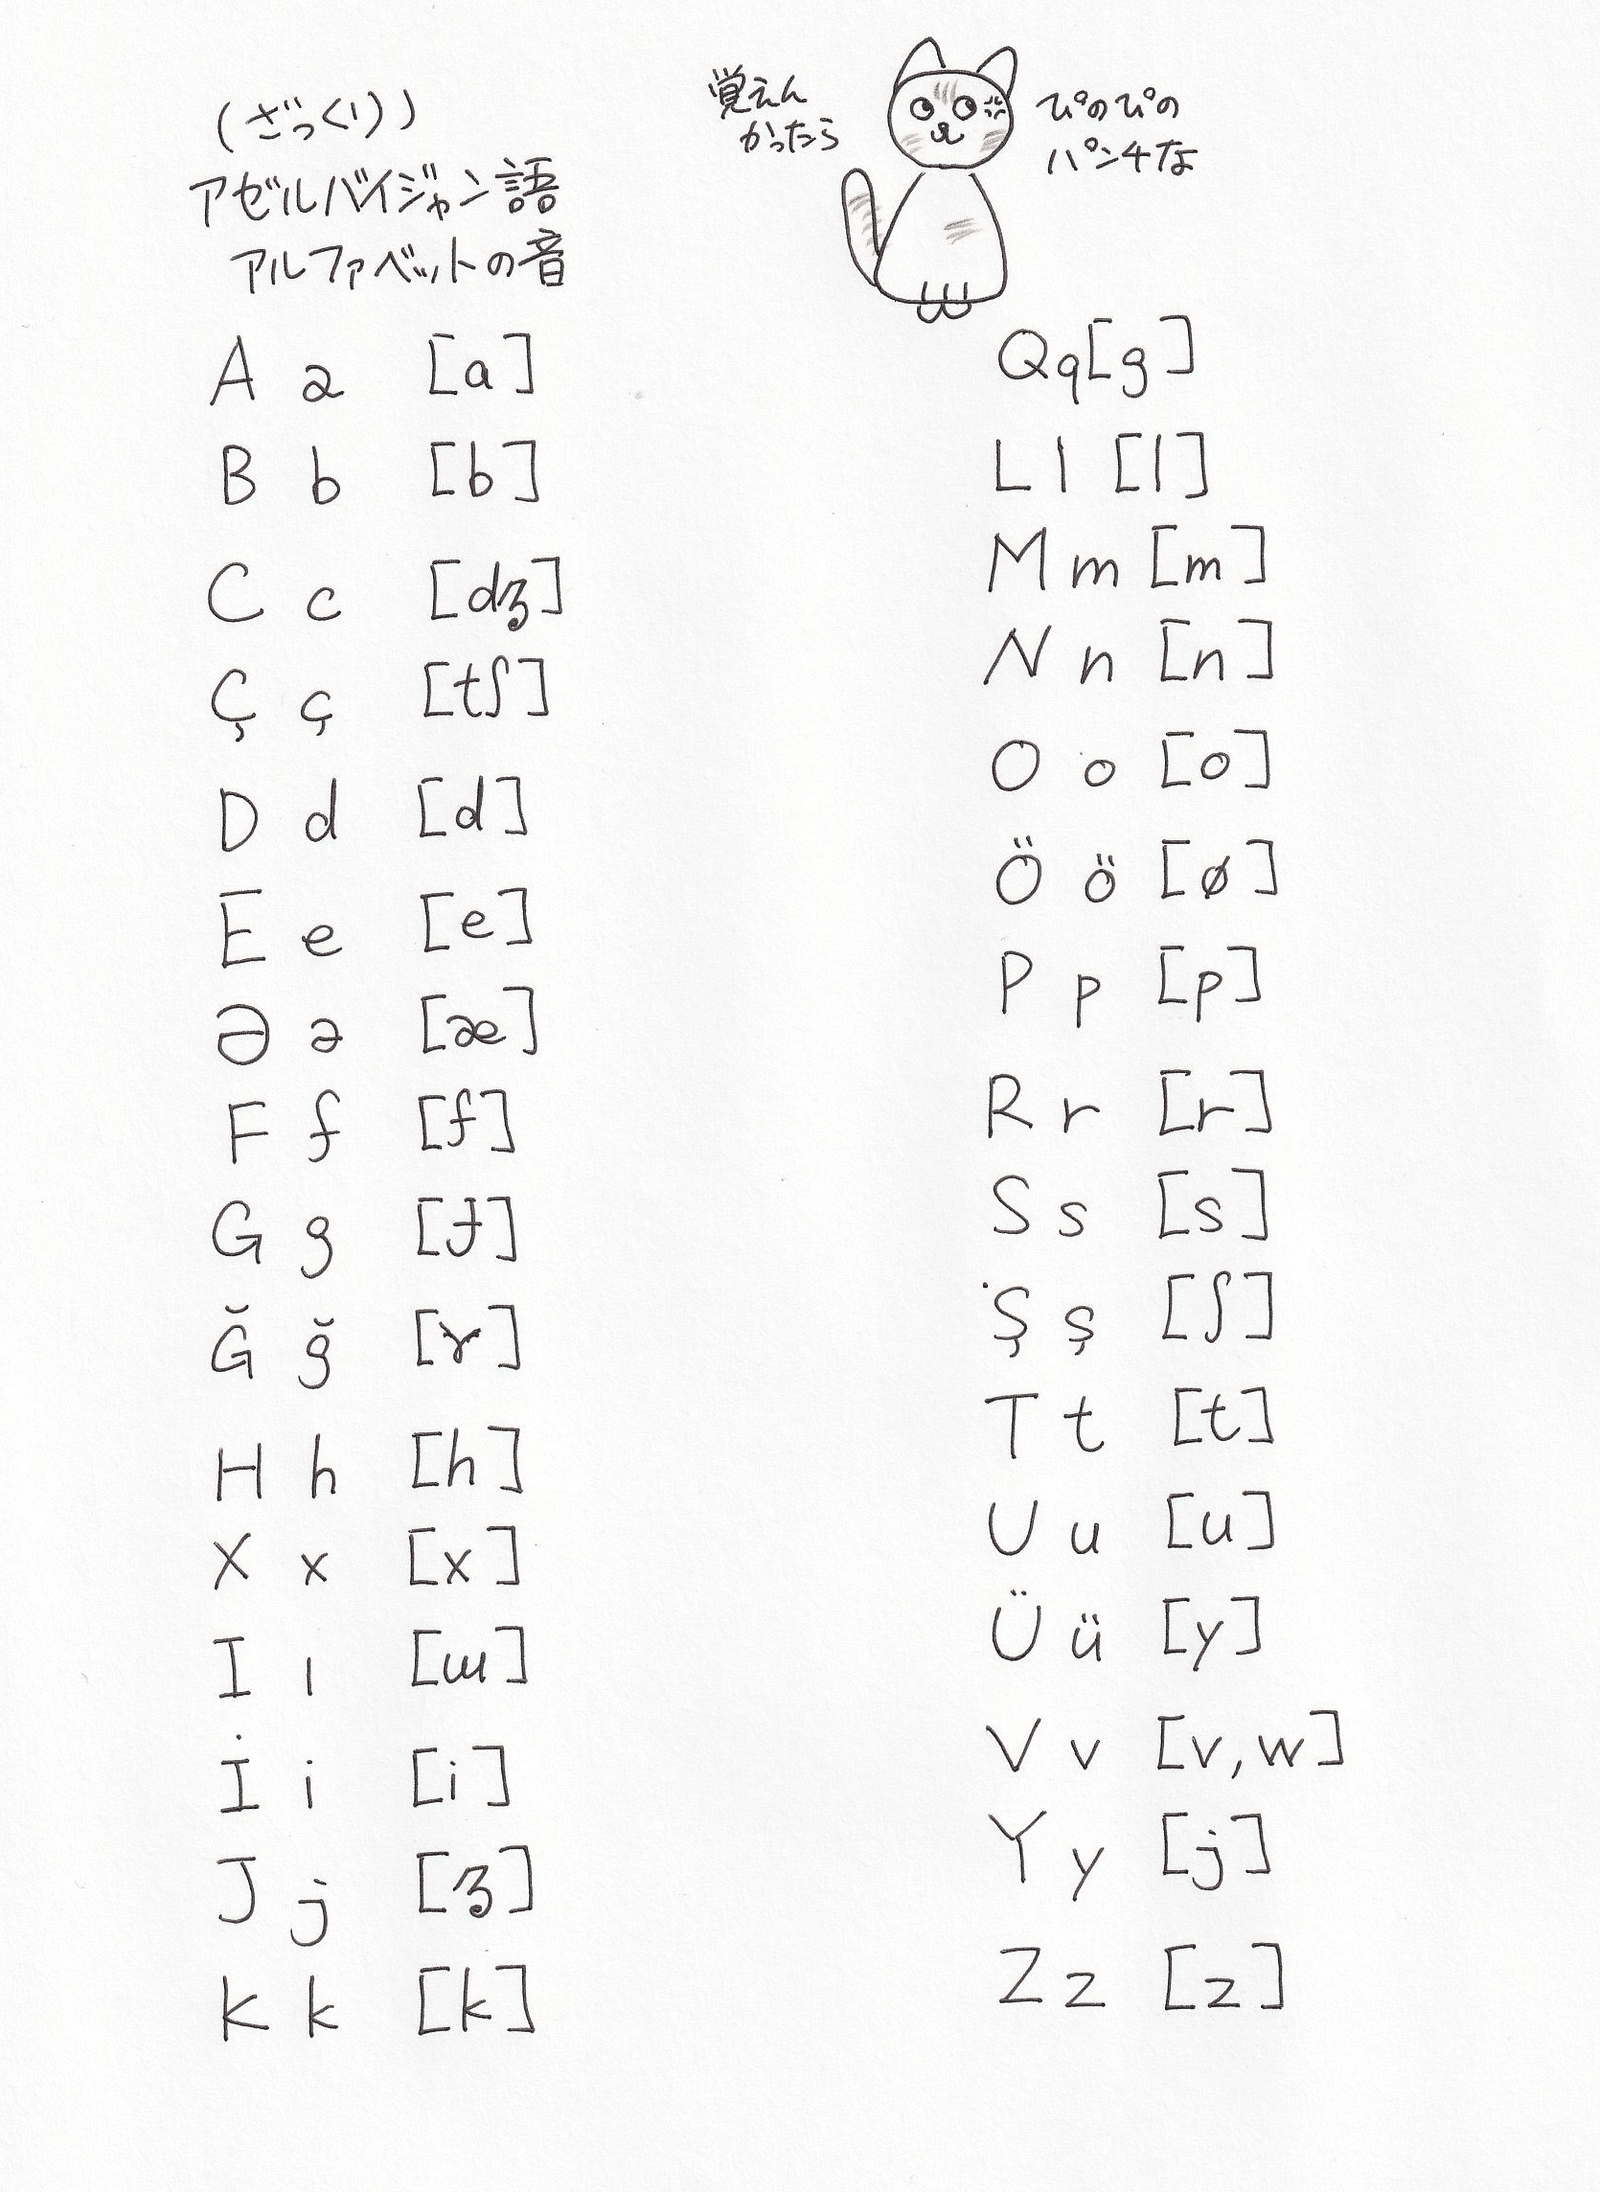 (ざっくり)
アゼルバイジャン語
アルファベットの音
覚えん
かったら
ぴのぴの
パンチな
A a [a]
B b [b]
C c [dʒ]
Ç ç [tʃ]
D d [d]
E e [e]
Ə ə [æ]
F f [f]
G g [ɟ]
Ğ ğ [ɤ]
H h [h]
X x [x]
I ı [ɯ]
İ i [i]
J j [ʒ]
K k [k]
Q q [g]
L l [l]
M m [m]
N n [n]
O o [o]
Ö ö [ø]
P p [p]
R r [r]
S s [s]
Ş ş [ʃ]
T t [t]
U u [u]
Ü ü [y]
V v [v, w]
Y y [j]
Z z [z]